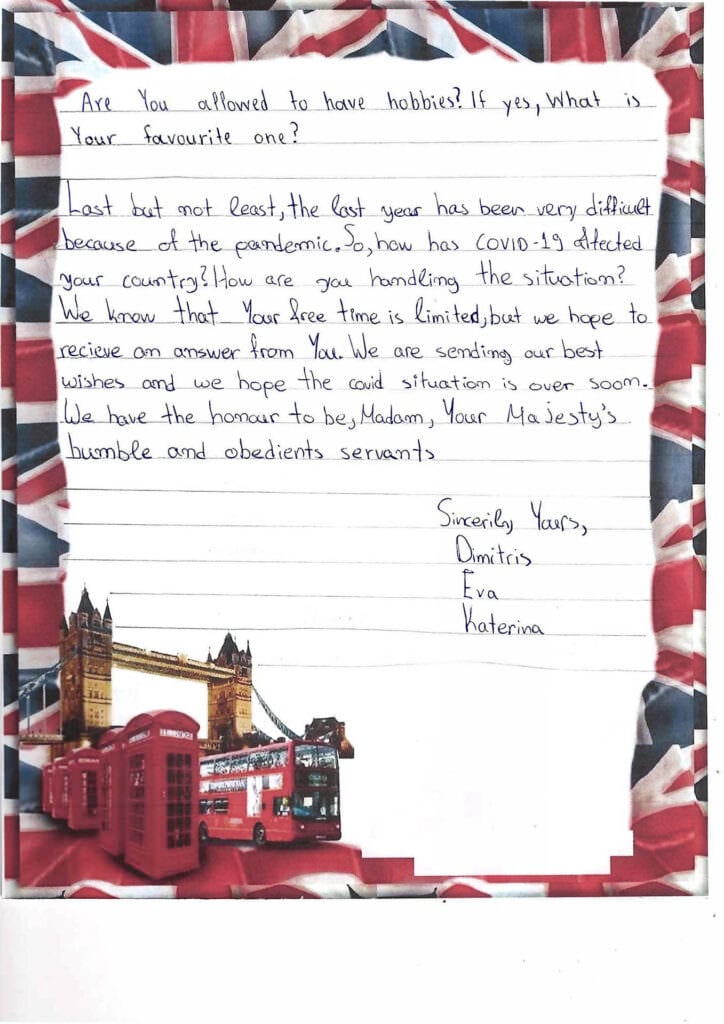 Are You allowed to have hobbies? If yes, What is
Your favourite one?
Last but not least, the last year has been very difficult
because of the pandemic. So, how has COVID-19 affected
your country? How are you handling the situation?
We know that Your free time is limited, but we hope to
recieve an answer from You. We are sending our best
wishes and we hope the covid situation is over soon.
We have the honour to be, Madam, Your Majesty's
humble and obedients servants
Sincerily Yours,
Dimitris
Eva
Katerina